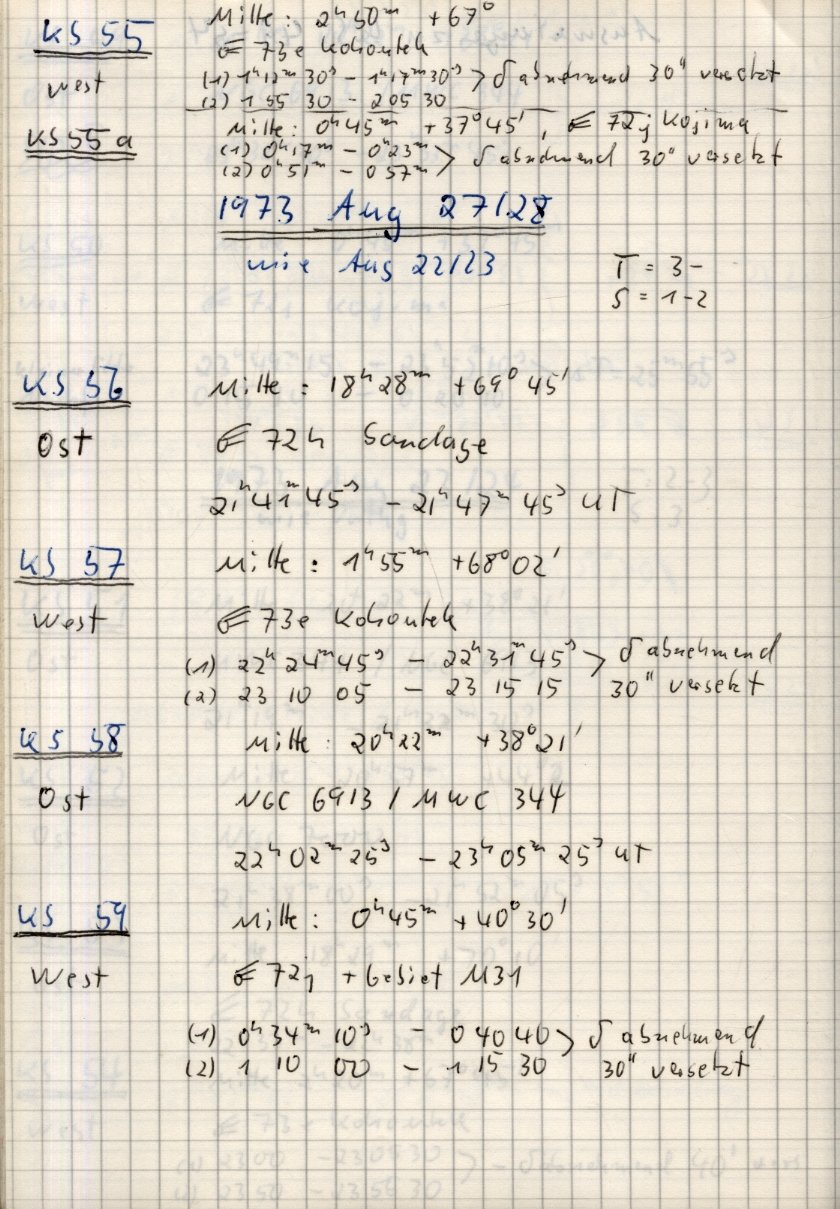 KS 55 Mitte: 2ʰ50ᵐ +67°
West ☄ 73e Kohoutek
(1) 1ʰ12ᵐ30ˢ – 1ʰ17ᵐ30ˢ > δ abnehmend 30" versetzt
(2) 1 55 30 – 2 05 30
KS 55a Mitte: 0ʰ45ᵐ +37°45', ☄ 72j Kojima
(1) 0ʰ17ᵐ – 0ʰ23ᵐ > δ abnehmend 30" versetzt
(2) 0ʰ51ᵐ – 0 57ᵐ
1973 Aug 27/28
wie Aug 22/23
T = 3-
S = 1-2
KS 56 Mitte: 18ʰ28ᵐ +69° 45'
Ost ☄ 72h Sandage
21ʰ41ᵐ45ˢ – 21ʰ47ᵐ45ˢ UT
KS 57 Mitte: 1ʰ55ᵐ +68°02'
West ☄ 73e Kohoutek
(1) 22ʰ24ᵐ45ˢ – 22ʰ31ᵐ45ˢ > δ abnehmend
(2) 23 10 05 – 23 15 15 30" versetzt
KS 58 Mitte: 20ʰ22ᵐ +38°21'
Ost NGC 6913 / MWC 344
22ʰ02ᵐ25ˢ – 23ʰ05ᵐ25ˢ UT
KS 59 Mitte: 0ʰ45ᵐ +40°30'
West ☄ 72j + Gebiet M31
(1) 0ʰ34ᵐ10ˢ – 0 40 40 > δ abnehmend
(2) 1 10 00 – 1 15 30 30" versetzt